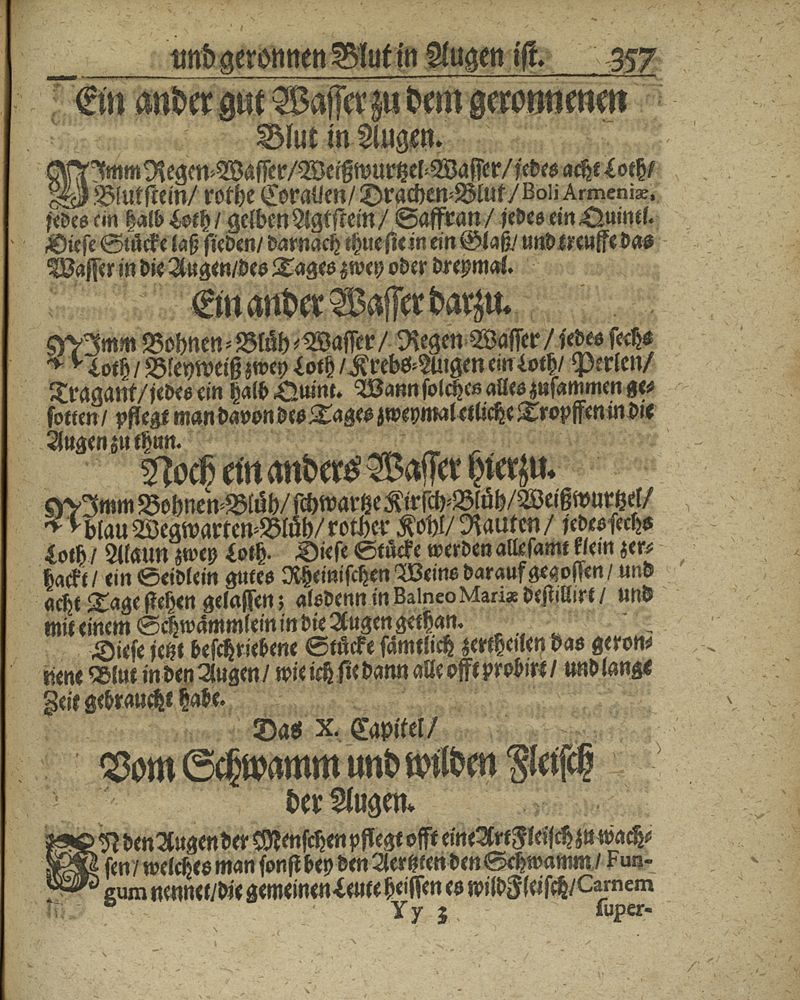 und geronnen Blut in Augen ist. 357
Ein ander gut Wasser zu dem geronnenen
Blut in Augen.
NImm Regen-Wasser/Weißwurtzel-Wasser/jedes acht Loth/
Blutstein/ rothe Corallen/ Drachen-Blut/ Boli Armeniæ,
jedes ein halb Loth/ gelben Agtstein/ Saffran/ jedes ein Quintl.
Diese Stücke laß sieden/ darnach thue sie in ein Glaß/ und treuffe das
Wasser in die Augen/des Tages zwey oder dreymal.
Ein ander Wasser darzu.
NImm Bohnen-Blüh-Wasser/ Regen-Wasser/ jedes sechs
Loth/ Bleyweiß zwey Loth/ Krebs-Augen ein Loth/ Perlen/
Tragant/jedes ein halb Quint. Wann solches alles zusammen ge-
sotten/ pflegt man davon des Tages zweymal etliche Tropffen in die
Augen zu thun.
Noch ein anders Wasser hierzu.
NImm Bohnen-Blüh/ schwartze Kirsch-Blüh/Weißwurtzel/
blau Wegwarten-Blüh/ rother Kohl/ Rauten/ jedes sechs
Loth/ Alaun zwey Loth. Diese Stücke werden allesamt klein zer-
hackt/ ein Seidlein gutes Rheinischen Weins darauf gegossen/ und
acht Tage stehen gelassen; alsdenn in Balneo Mariæ destillirt/ und
mit einem Schwämmlein in die Augen gethan.
Diese jetzt beschriebene Stücke sämtlich zertheilen das geron-
nene Blut in den Augen/ wie ich sie dann alle offt probirt/ und lange
Zeit gebraucht habe.
Das X. Capitel/
Vom Schwamm und wilden Fleisch
der Augen.
IN den Augen der Menschen pflegt offt eine Art Fleisch zu wach-
sen/ welches man sonst bey den Aertzten den Schwamm/ Fun-
gum nennet/die gemeinen Leute heissen es wild Fleisch/Carnem
Yy 3 super-